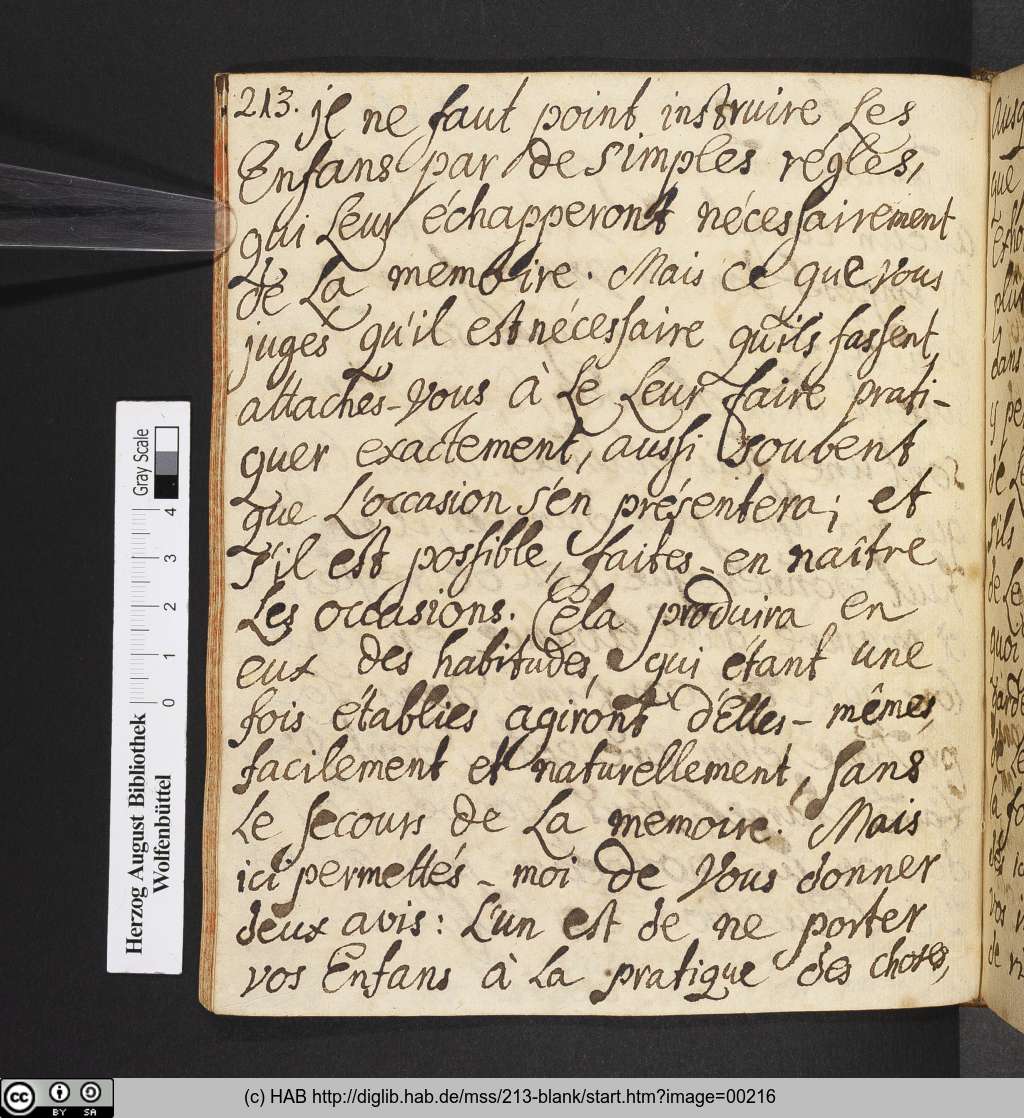 213. jl ne faut point instruire Les
Enfans par de simples régles,
qui Leur échapperont nécessairement
de La memoire. Mais ce que vous
jugés qu'il est nécessaire qu'ils fassent,
attachés-vous à Le Leur faire prati-
quer exactement, aussi souvent
que L'occasion s'en présentera; et
s'il est possible, faites-en naître
Les occasions. Cela produira en
eux des habitudes, qui étant une
fois établies agiront d'Elles-mêmes,
facilement et naturellement, sans
Le secours de La memoire. Mais
ici permettés-moi de vous donner
deux avis: L'un est de ne porter
vos Enfans à La pratique des choses,
Herzog August Bibliothek
Wolfenbüttel
Gray Scale
0 1 2 3 4
cc BY SA
(c) HAB http://diglib.hab.de/mss/213-blank/start.htm?image=00216